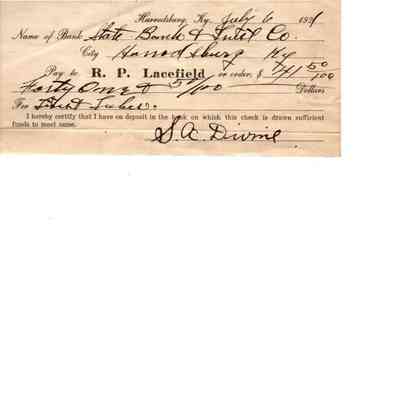 Harrodsburg, Ky. July 6 1931
Name of Bank State Bank & Trust Co.
City Harrodsburg Ky
Pay to R. P. Lacefield or order, $ 41 50/100
Forty One & 50/100 Dollars
For
I hereby certify that I have on deposit in the bank on which this check is drawn sufficient
funds to meet same.
S. A. Divine